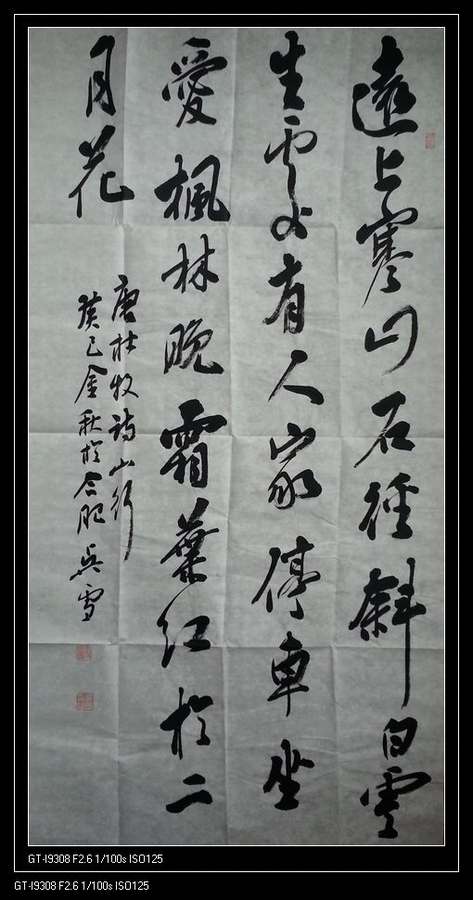 遠上寒山石徑斜白雲
生處有人家停車坐
愛楓林晚霜葉紅於二
月花
唐杜牧詩山行
癸巳金秋於合肥吳雪
GT-I9308 F2.6 1/100s ISO125
GT-I9308 F2.6 1/100s ISO125